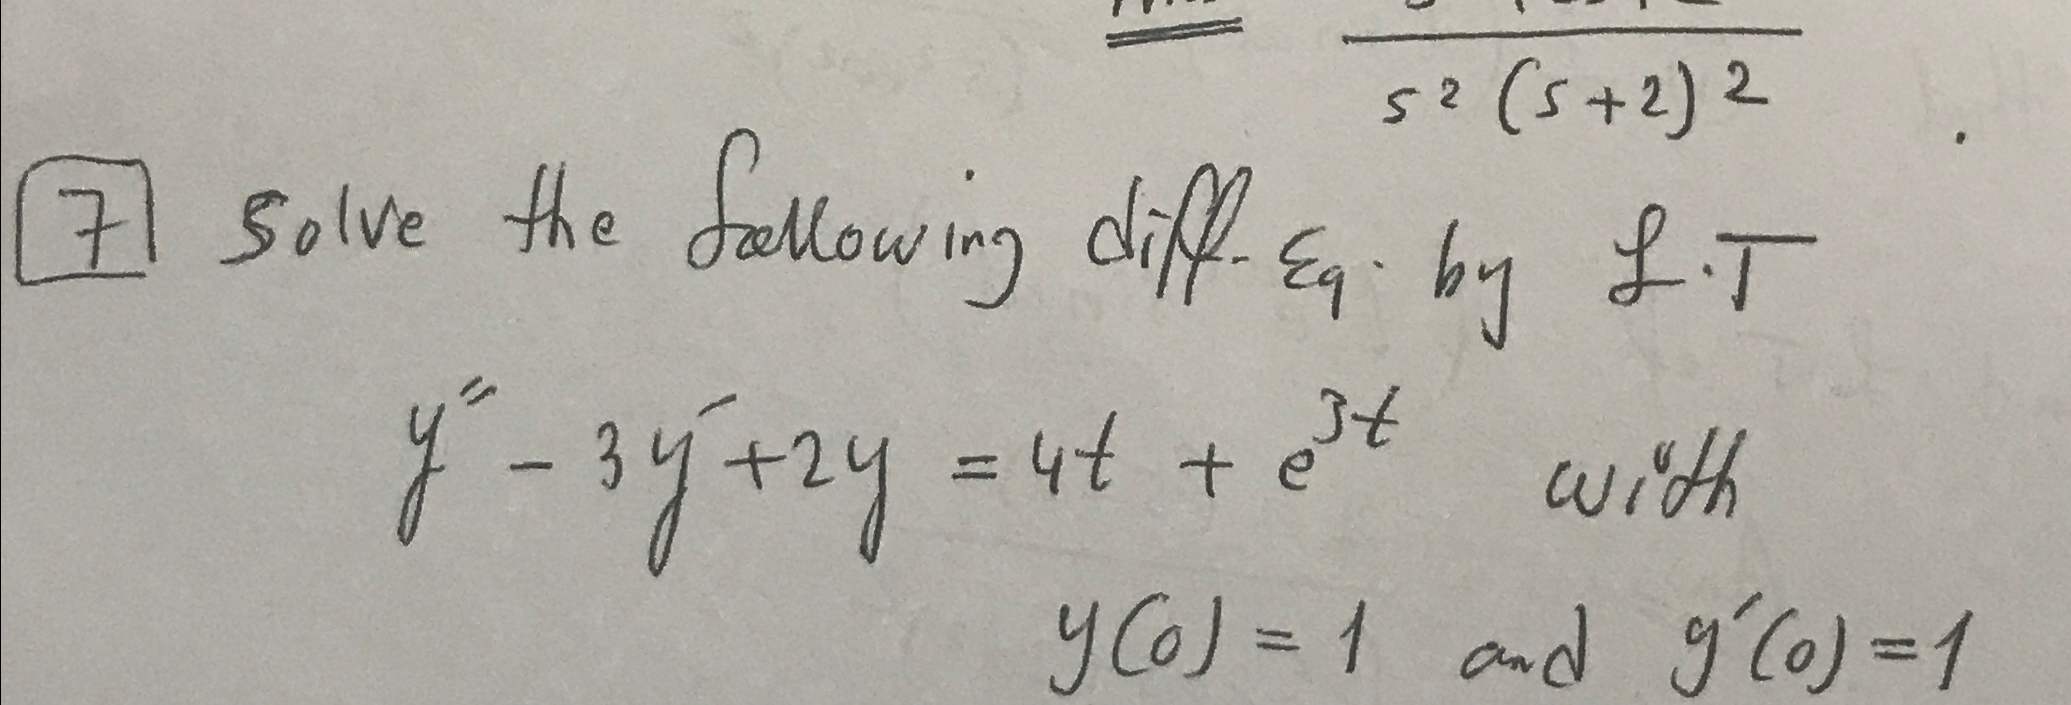 s² (s+2)²
7 Solve the following diff. Eq. by L.T
y″ - 3y′ + 2y = 4t + e³ᵗ with
y(0) = 1 and y′(0) = 1